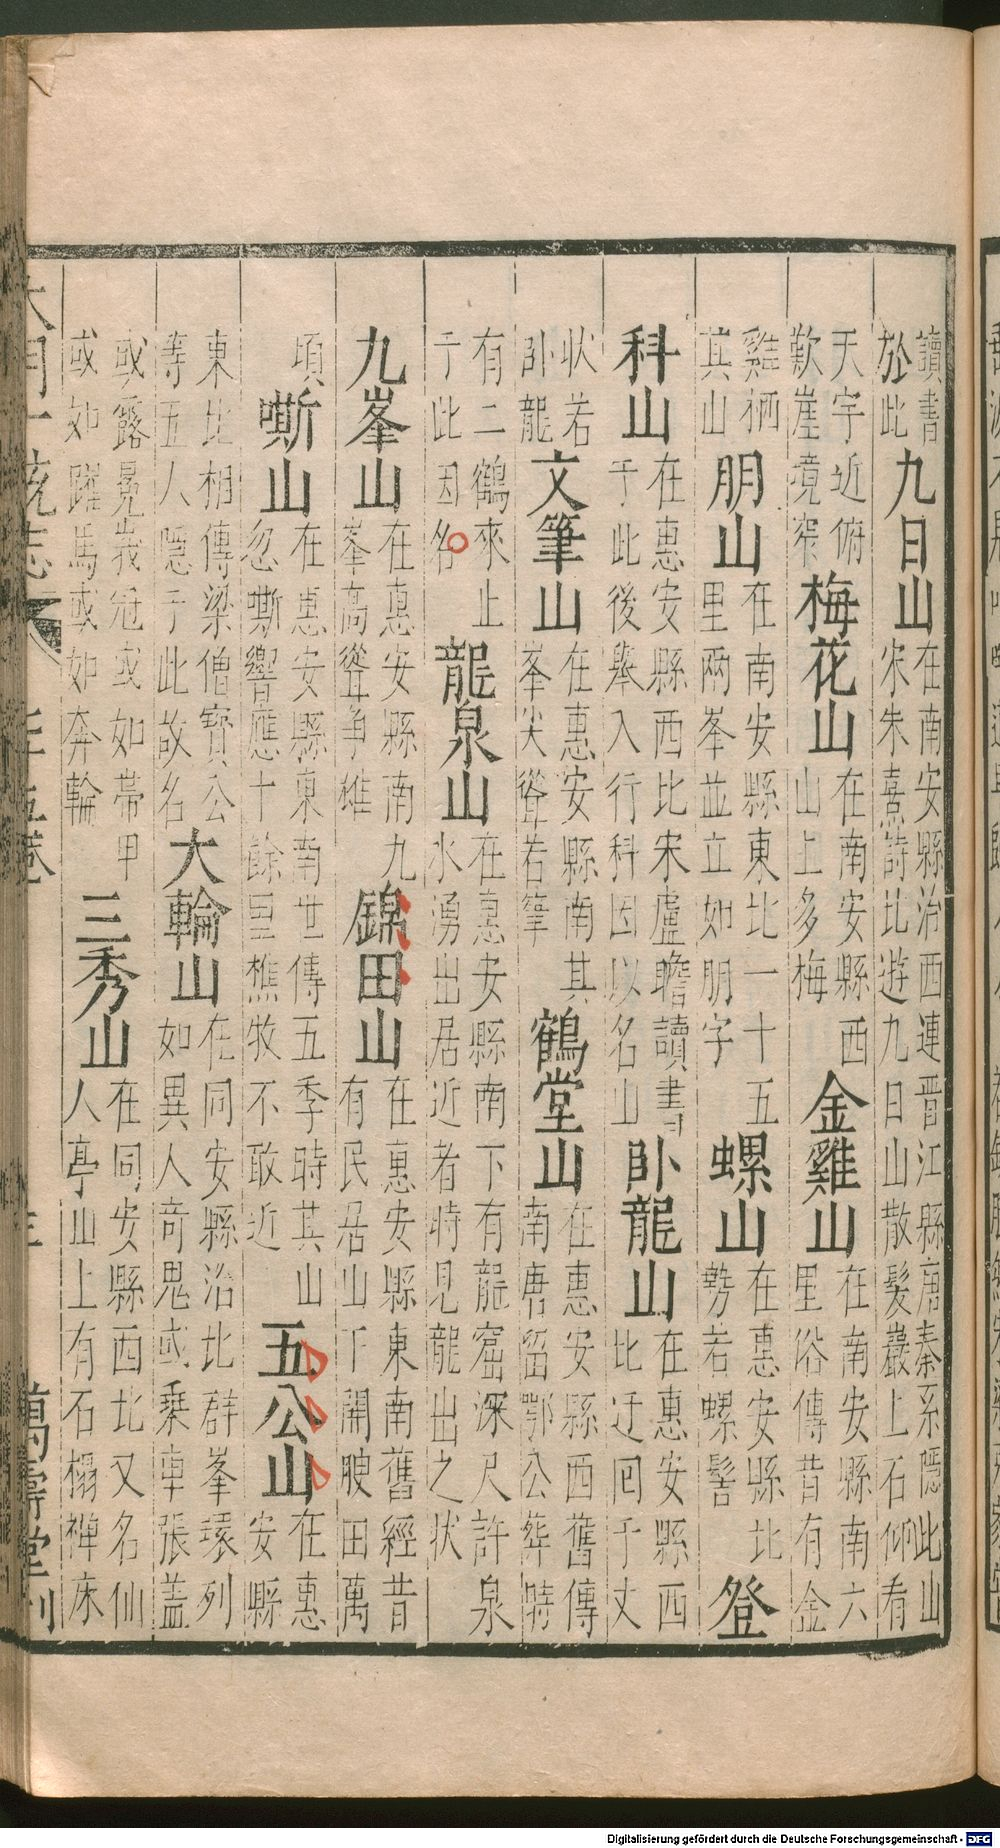 讀書於此 九日山 在南安縣治西連晉江縣唐秦系隱此山宋朱熹詩北遊九日山散髮巖上石仰看
天宇近俯歎崖境窄 梅花山 在南安縣西山上多梅 金雞山 在南安縣南六里俗傳昔有金
雞栖其山 朋山 在南安縣東北一十五里兩峯並立如朋字 螺山 在惠安縣北勢若螺髻 登
科山 在惠安縣西北宋盧瞻讀書于此後舉入行科因以名山 卧龍山 在惠安縣西北迂回于丈
状若卧龍 文筆山 在惠安縣南其峯尖聳若筆 鶴堂山 在惠安縣西舊傳南唐留鄂公葬時
有二鶴來止于此因名 龍泉山 在惠安縣南下有龍窟深尺許泉水湧出居近者時見龍出之状
九峯山 在惠安縣南九峯高聳爭雄 錦田山 在惠安縣東南舊經昔有民居山下開腴田萬
頃 嘶山 在惠安縣東南世傳五季時其山忽嘶響應十餘里樵牧不敢近 五公山 在惠安縣
東北相傳梁僧寶公等五人隱于此故名 大輪山 在同安縣治北群峯環列如異人奇鬼或乗車張蓋
或露冕峩冠或如帶甲或如躍馬或如奔輪 三秀山 在同安縣西北又名仙人亭山上有石榻禪床
大明一統志 萬壽堂刊
Digitalisierung gefördert durch die Deutsche Forschungsgemeinschaft - DFG